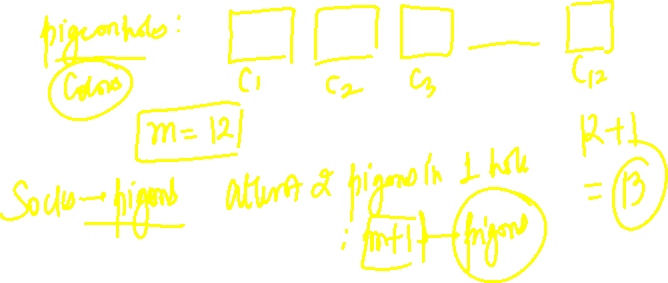 pigeonholes:
Colors
C1 C2 C3 C12
m = 12
12+1
= 13
Socks → pigons atleast 2 pigons in 1 hole
: m+1 → pigons